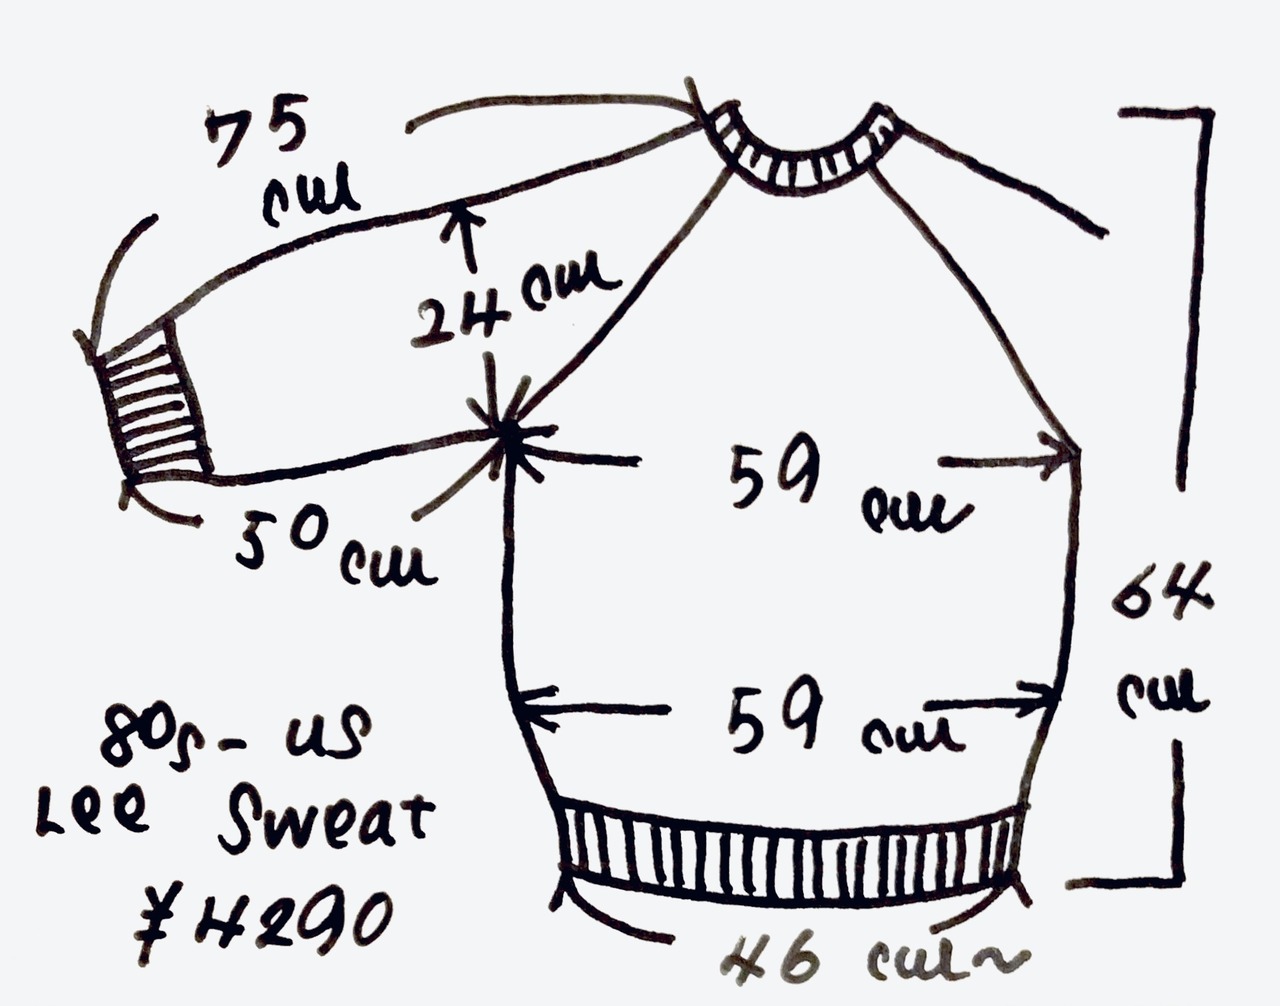 75
cm
24 cm
59
cm
50 cm
64
cm
59 cm
80s- US
Lee Sweat
¥4290
46 cm~